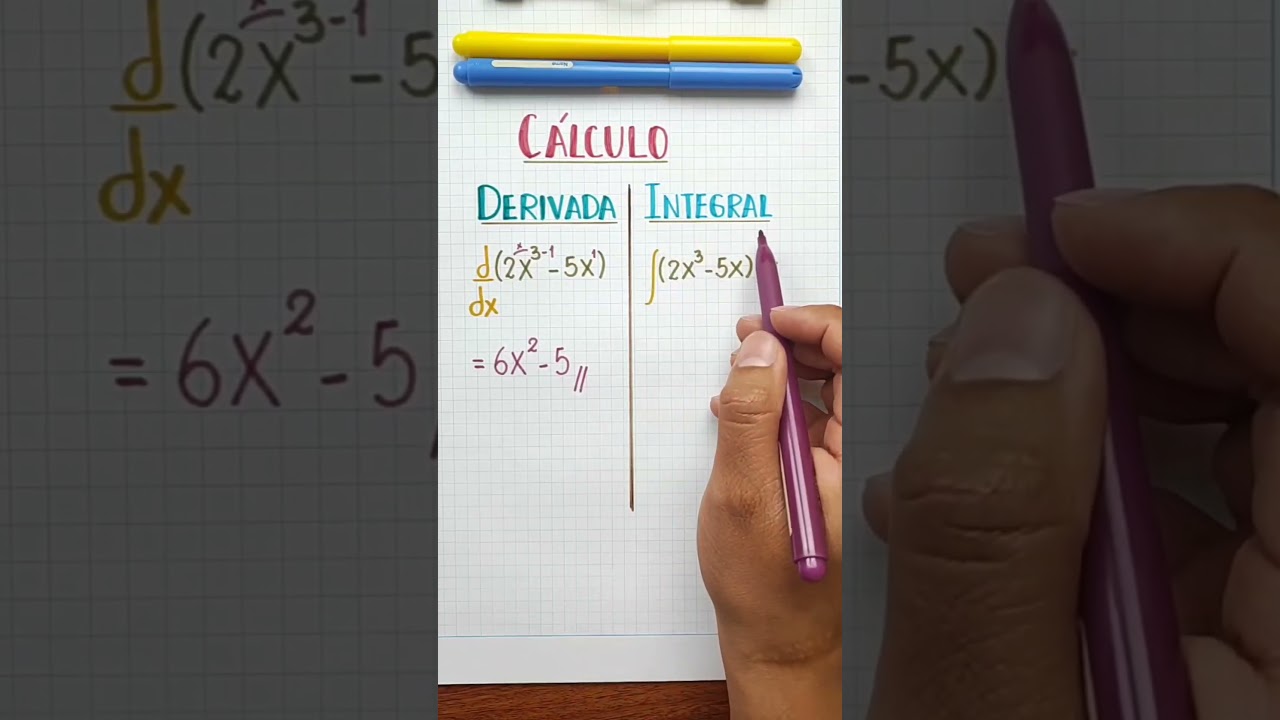 CÁLCULO
DERIVADA
d/dx (2x³⁻¹ - 5x¹)
= 6x² - 5 //
INTEGRAL
∫(2x³ - 5x)